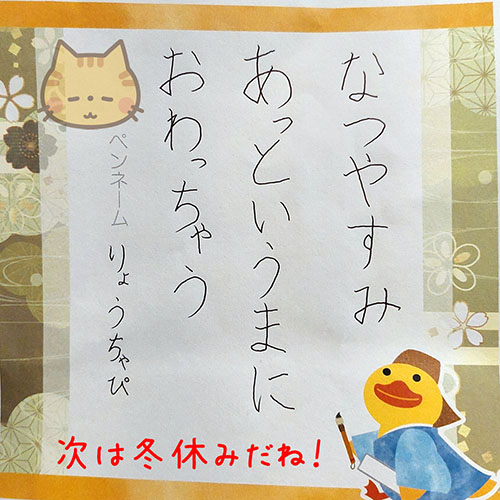 なつやすみ
あっというまに
おわっちゃう
ペンネーム りょうちゃぴ
次は冬休みだね!